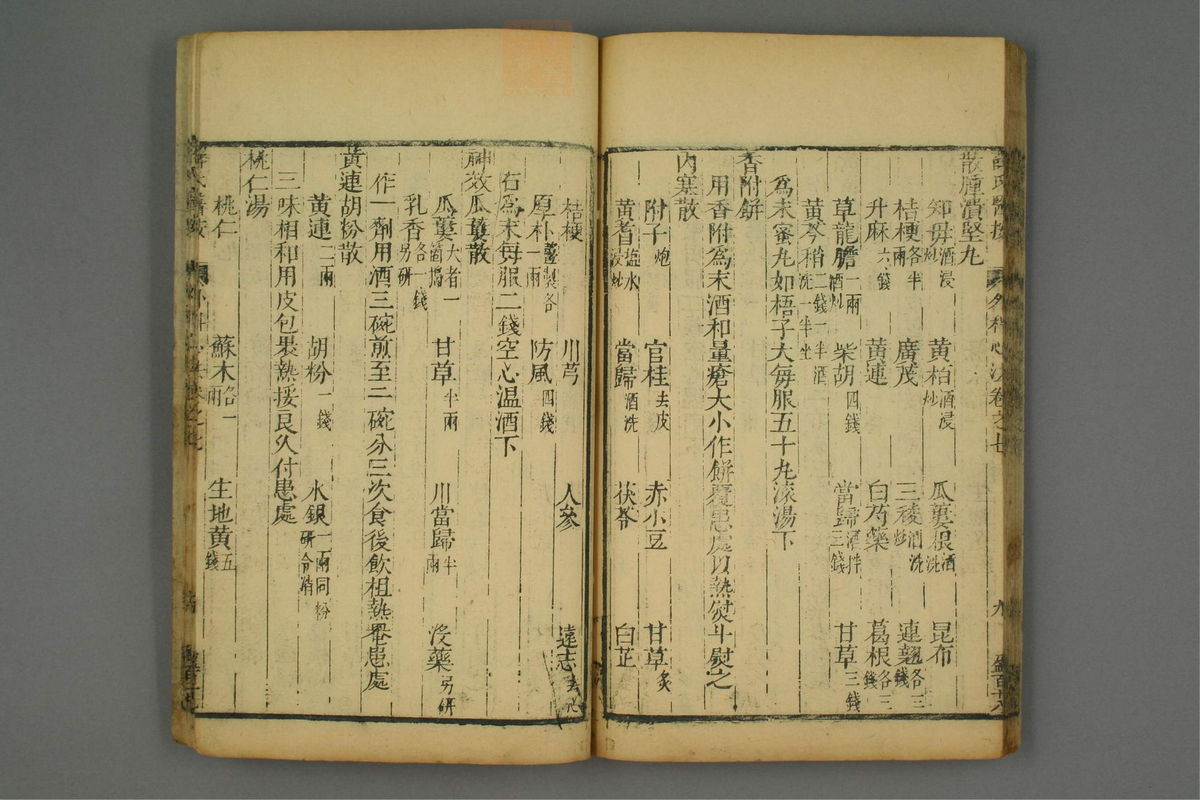 薛氏醫按 外科心法卷之七 九
散腫潰堅丸
知母酒浸炒 黄柏酒浸炒 瓜蔞根酒洗 昆布
桔梗各半兩 廣茂 三稜酒洗炒 連翹各三錢
升麻六錢 黄連 白芍藥 葛根各三錢
草龍膽一兩酒炒 柴胡四錢 當歸酒拌三錢 甘草三錢
黄芩稍二錢一半酒洗一半生
爲末蜜丸如梧子大每服五十丸滚湯下
香附餅
用香附爲末酒和量瘡大小作餅覆患處以熱熨斗熨之
内塞散
附子炮 官桂去皮 赤小豆 甘草炙
黄耆塩水浸炒 當歸酒洗 茯苓 白芷
桔梗 川芎 人參 遠志去心
厚朴薑製各一兩 防風四錢
右爲末每服二錢空心温酒下
神效瓜蔞散
瓜蔞大者一箇搗 甘草半兩 川當歸半兩 没藥另研
乳香各一錢另研
作一劑用酒三碗煎至二碗分三次食後飲柤熱罨患處
黄連胡粉散
黄連二兩 胡粉一錢 水銀一兩同粉研令消
三味相和用皮包褁熱挼良久付患處
桃仁湯
桃仁 蘇木各一兩 生地黄五錢